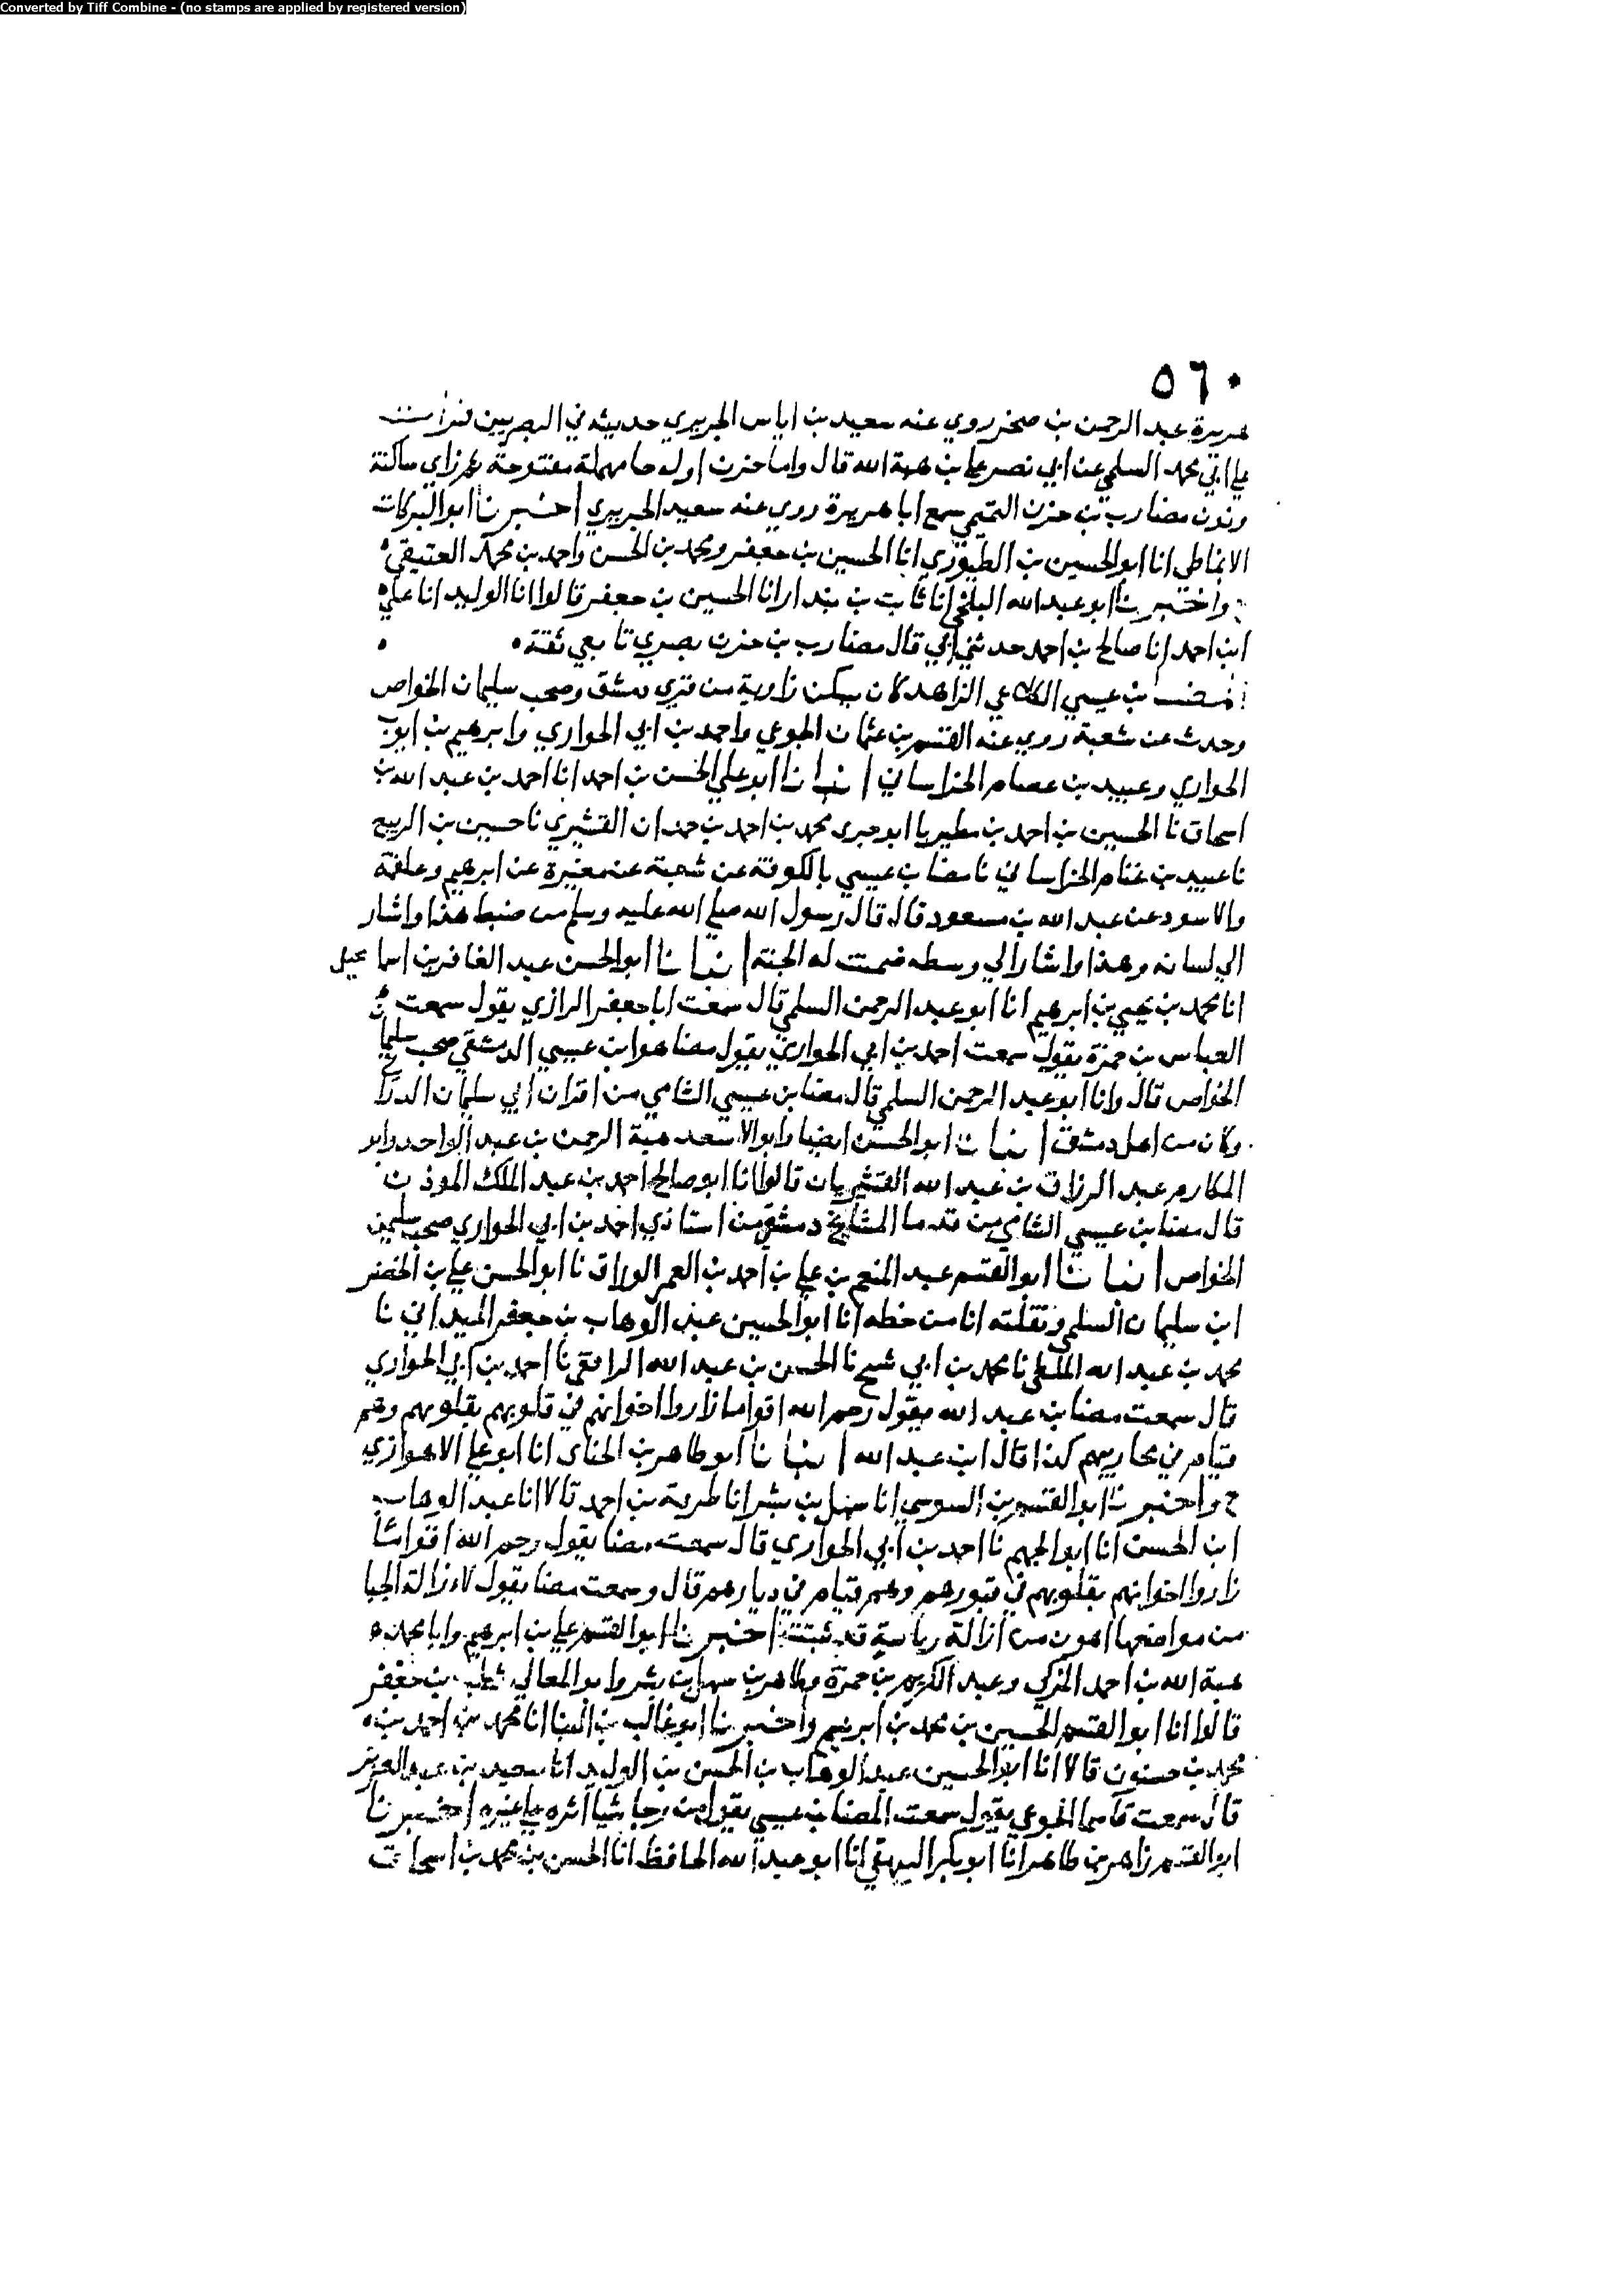 Converted by Tiff Combine - (no stamps are applied by registered version)
٥٦٠
هريرة عبد الرحمن بن صخر روي عنه سعيد بن اياس الجريري حديثه في البصريين قرات
علي ابي محمد السلمي عن ابي نصر علي بن هبة الله قال واما حزن اوله حا مهملة مفتوحة ثم زاي ساكنة
ونون مضارب بن حزن التميمي سمع ابا هريرة روي عنه سعيد الجريري اخبرنا ابو البركات
الانماطي انا ابو الحسين بن الطيوري انا الحسين بن جعفر ومحمد بن الحسن واحمد بن محمد العتيقي
واخبرنا ابو عبد الله البلخي انا ثابت بن بندار انا الحسين بن جعفر قالوا انا الوليد انا علي
ابن احمد انا صالح بن احمد حدثني ابي قال مضارب بن حزن بصري تابعي ثقة
بن عيسي الكلاعي الزاهد كان يسكن زاوية من قري دمشق وصحب سليمان الخواص
وحدث عن شعبة روي عنه القسم بن عثمان الجوعي واحمد بن ابي الحواري وابرهيم بن ايوب
الحواري وعبيد بن عصام الخراساني انبانا ابو علي الحسن بن احمد انا احمد بن عبد الله بن
اسحاق نا الحسين بن احمد بن محمد بن احمد بن حمدان القشيري نا حسين بن الربيع
نا عبيد بن غنام الخراساني نا مضا بن عيسي بالكوفة عن شعبة عن مغيرة عن ابرهيم وعلقمة
والاسود عن عبد الله بن مسعود قال قال رسول الله صلي الله عليه وسلم من ضبط هذا واشار
الي لسانه وهذا واشار الي وسطه ضمنت له الجنة انبانا ابو الحسن عبد الغافر بن اسماعيل
انا محمد بن يحيي بن ابرهيم انا ابو عبد الرحمن السلمي قال سمعت ابا جعفر الرازي يقول سمعت
العباس بن حمزة يقول سمعت احمد بن ابي الحواري يقول مضا هو ابن عيسي الدمشقي صحب سليمان
الخواص قال وانا ابو عبد الرحمن السلمي قال مضا بن عيسي الشامي من اقران ابي سلمان الدراني
وكان من اهل دمشق انبانا ابو الحسن ايضا وابو الاسعد هبة الرحمن بن عبد الواحد وابو
المكارم عبد الرزاق بن عبد الله القشيريان قالوا انا ابو صالح احمد بن عبد الملك الموذن
قال مضا بن عيسي الشامي من قدما المشايخ دمشق من استاذي احمد بن ابي الحواري صحب سليمن
الخواص انبانا ابو القسم عبد المنعم بن علي بن احمد بن الغمر الوراق نا ابو الحسن علي بن الخضر
ابن سليمان السلمي ونقلته انا من خطه انا ابو الحسين عبد الوهاب بن جعفر الميداني نا
محمد بن عبد الله نا محمد بن ابي شيخ نا الحسن بن عبد الله الرافقي نا احمد بن ابي الحواري
قال سمعت مضا بن عبد الله يقول رحم الله اقواما زاروا اخوانهم في قلوبهم بقلوبهم وهم
قيام في محاريبهم كذا قال ابن عبد الله انبانا ابو طاهر بن الحنائي انا ابو علي الاهوازي
ح واخبرنا ابو القسم بن السوسي انا سهل بن بشر انا طرفة بن احمد قالا انا عبد الوهاب
ابن الحسن انا ابو الجهم نا احمد بن ابي الحواري قال سمعت مضا يقول رحم الله اقواما
زاروا اخوانهم بقلوبهم في قبورهم وهم قيام في ديارهم قال وسمعت مضا يقول لازالة الجبال
من مواضعها اهون من ازالة رياسة قد ثبتت اخبرنا ابو القسم علي بن ابرهيم وابا محمد
هبة الله بن احمد المزكي وعبد الكريم بن حمزة وطاهر بن سهل بن بشر وابو المعالي بن جعفر
قالوا انا ابو القسم الحسين بن محمد بن ابرهيم واخبرنا ابو غالب بن البنا انا محمد بن احمد بن
محمد بن حسنون قالا انا ابو الحسين عبد الوهاب بن الحسن بن الوليد انا سعيد بن عبد العزيز
قال سمعت قاسم الجوعي يقول سمعت المضا بن عيسي يقول من رجا شيا اثره علي غيره اخبرنا
ابو القسم زاهر بن طاهر انا ابو بكر البيهقي انا ابو عبد الله الحافظ انا الحسن بن محمد بن اسحاق